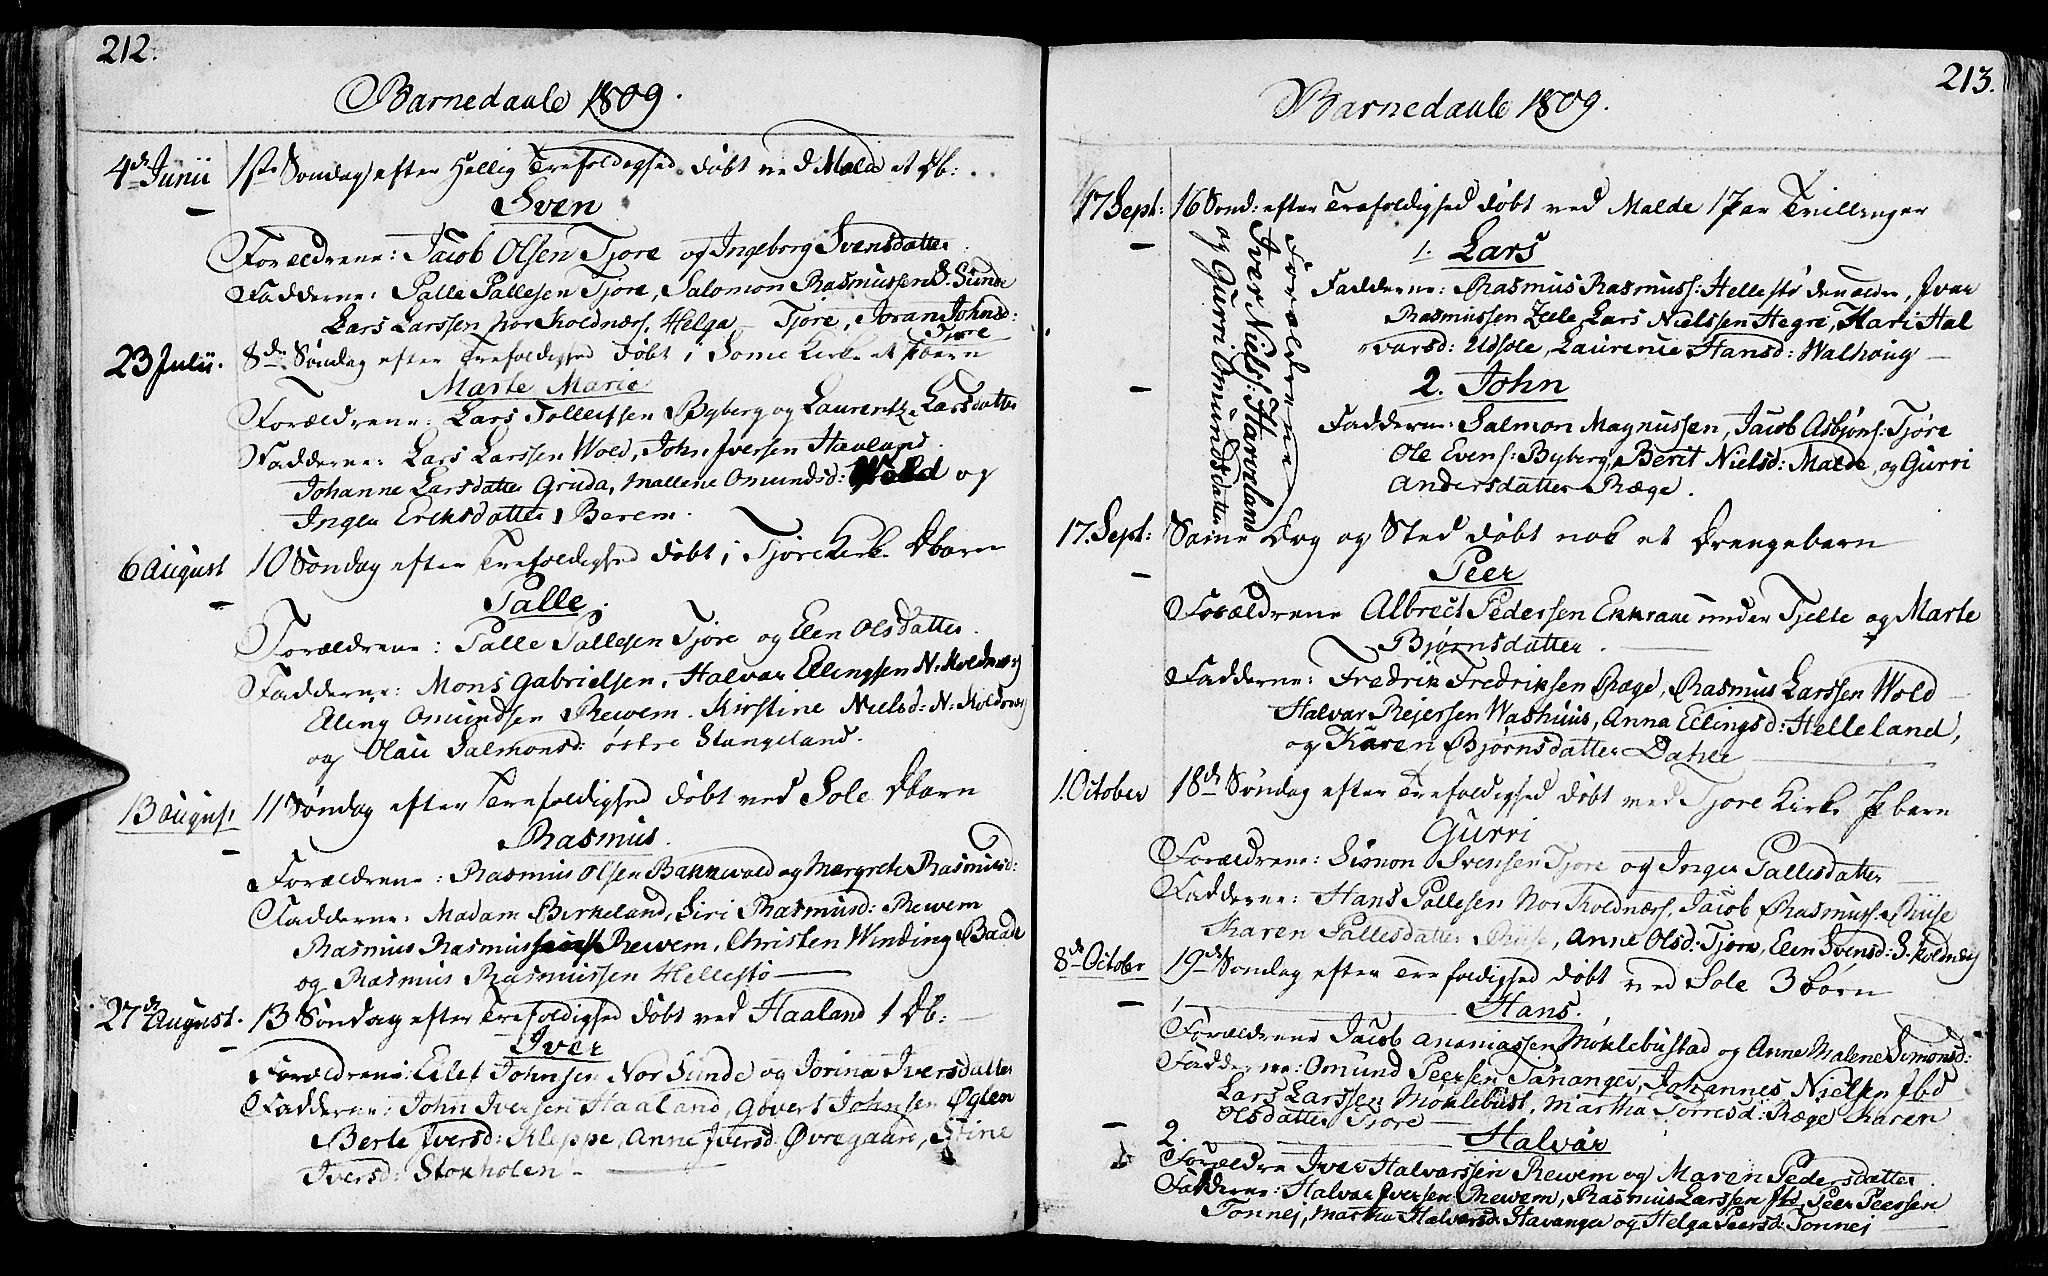 212.
Barnedaab 1809.
4de Junii 1ste Søndag efter Hellig Trefoldighed døbt ved Malde et Db:
Sven
Forældrene: Jacob Olsen Tjore og Ingeborg Svensdatter
Fadderne: Palle Pallesen Tjore, Salomon Rasmussen S. Sunde
Lars Larssen Nor Koldnæs, Helga Tjore, Joran Johnsd:
Tjore
23 Julii. 8de Søndag efter Trefoldighed døbt i Some Kirke et Pbarn
Marte Marie
Forældrene: Lars Tollefssen Byberg og Laurentze Larsdatter
Fadderne: Lars Larssen Wold, John Iversen Haaland
Johanne Larsdatter Gruda, Mallene Omundsd: Wold og
Inger Eriksdatter Berem.
6 August 10 Søndag efter Trefoldighed døbt i Tjore Kirke Dbarn
Palle.
Forældrene: Palle Pallesen Tjore og Elen Olsdatter.
Fadderne: Mons Gabrielsen, Halvar Ellingsen N. Koldnæs
Eling Omundsen Rewem. Kirstine Nielsd: N. Koldnæs
og Olau Salmonsd: østre Stangeland.
13 August 11 Søndag efter Trefoldighed døbt ved Sole Dbarn
Rasmus.
Forældrene: Rasmus Olsen Bakkevold og Margrete Rasmusd:
Fadderne: Madam Birkeland, Siri Rasmusd: Rewem
Rasmus Rasmussen Rewem, Christen Winding Baade
og Rasmus Rasmussen Hellestø
27de August. 13 Søndag efter Trefoldighed døbt ved Haaland 1 Db:
Iver
Forældrene: Eilef Johnsen Nor Sunde og Jorina Iversdatter
Fadderne: John Iversen Haaland, Govert Johnsen Øglen
Berte Iversd: Kleppe, Anne Iversd: Øvregaard, Stine
Iversd: Stokholen
213.
Barnedaab 1809.
17 Sept: 16 Sønd: efter Trefoldighed døbt ved Malde 1 Par Tvillinger
1. Lars
Forældrene
Iver Nielss: Haaland
og Gurri Omundsdatter
Fadderne: Rasmus Rasmuss: Hellestø den ældre, Ivar
Rasmussen Zele, Lars Nielssen Hegre, Kari Hal
varsd: Udsole, Laurense Hansd: Walhoug
2. John
Fadderne: Salmon Magnussen, Jacob Asbjøns: Tjøre
Ole Evens: Byberg, Berit Nielsd: Malde, og Gurri
Andersdatter Ræge.
17. Sept: Samme Dag og Sted døbt nok et Drengebarn
Peer
Forældrene Albrect Pedersen Ekkrane under Tjelte og Marte
Bjørnsdatter.
Fadderne: Fredrik Fredriksen Ræge, Rasmus Larssen Wold
Halvar Rejersen Washuus, Anna Ellingsd: Helleland,
og Karen Bjørnsdatter Dahle
1. October 18de Søndag efter Trefoldighed døbt ved Tjore Kirke Pbarn
Gurri
Forældrene: Simon Svensen Tjore og Inger Pallesdatter
Fadderne: Hans Pallesen Nor Koldnæs, Jacob Rasmuss: Risse
Karen Pallesdatter Risse, Anne Olsd: Tjore, Elen Svensd: S. Koldnæs
8de October 19de Søndag efter Trefoldighed døbt ved Sole 3 børn
1. Hans.
Forældrene Jacob Ananiassen Møklebustad og Anne Malene Simonsd:
Fadderne: Omund Peersen Tananger, Johannes Nielsen ibd
Lars Larssen Møklebust, Martha Torresd: Ræge Karen
Olsdatter Tjore
2. Halvår
Forældre Iver Halvarssen Rewem og Maren Pedersdatter.
Fadderne: Halvar Iversen Rewem, Rasmus Larssen ibd, Peer Peersen
Tonnej, Martha Halvarsd: Stavanger og Helga Peersd: Tonnej